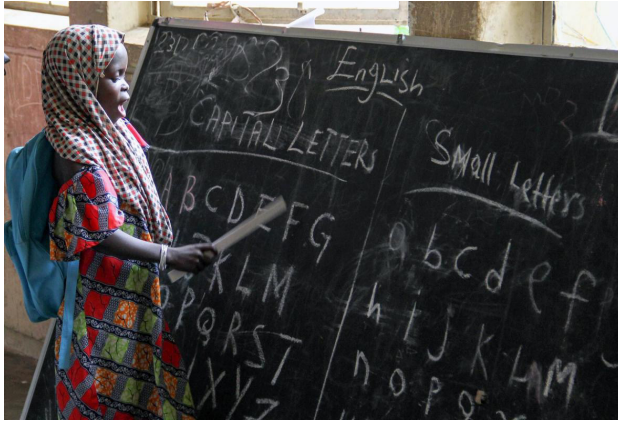 English
CAPITAL LETTERS
A B C D E F G
K L M
P Q R S T
X Y Z
Small Letters
a b c d e f
h i J K L M
n o p q